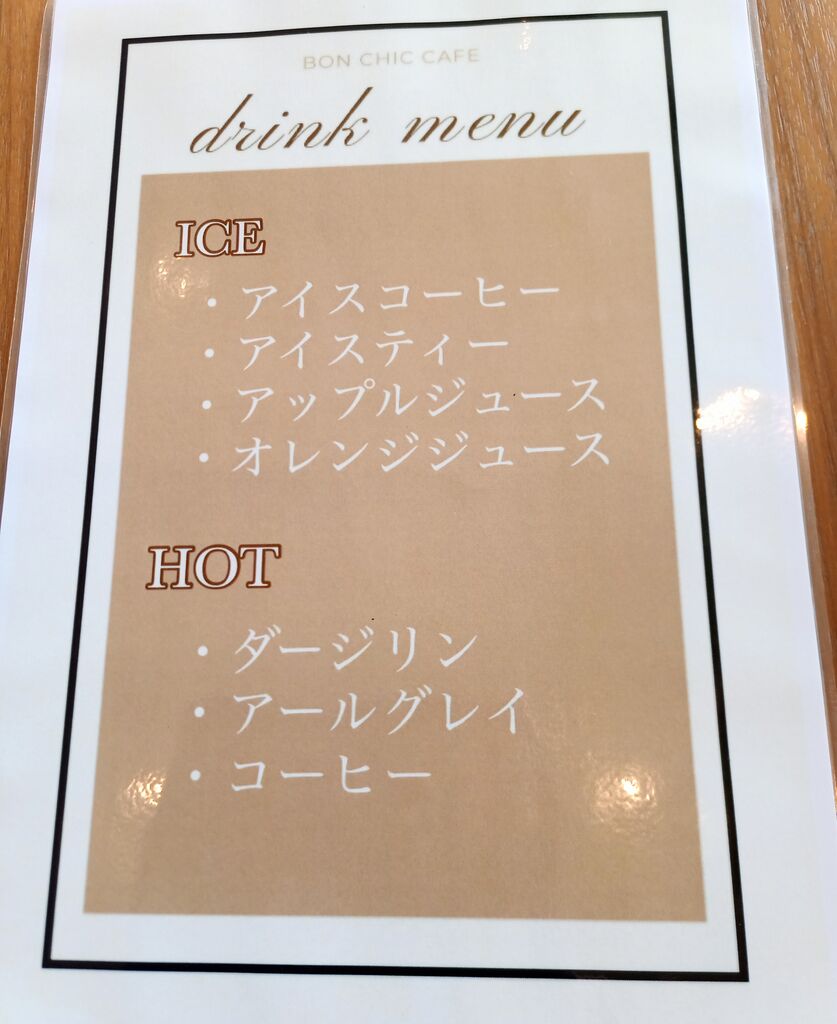 BON CHIC CAFE
drink menu
ICE
・アイスコーヒー
・アイスティー
・アップルジュース
・オレンジジュース
HOT
・ダージリン
・アールグレイ
・コーヒー